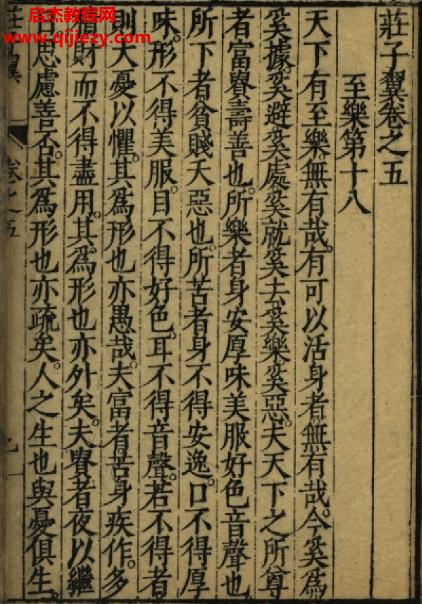 启杰教程网
www.qijiezy.com
莊子翼卷之五
至樂第十八
天下有至樂無有哉。有可以活身者。無有哉。今奚爲
奚據奚避奚處奚就奚去奚樂奚惡。夫天下之所尊
者富貴壽善也。所樂者身安厚味美服好色音聲也
所下者貧賤夭惡也。所苦者身不得安逸。口不得厚
味。形不得美服。目不得好色。耳不得音聲。若不得者。
則大憂以懼。其爲形也亦愚哉。夫富者苦身疾作。多
財而不得盡用。其爲形也亦外矣。夫貴者夜以繼
思慮善否。其爲形也亦疏矣。人之生也與憂俱生。
卷之五